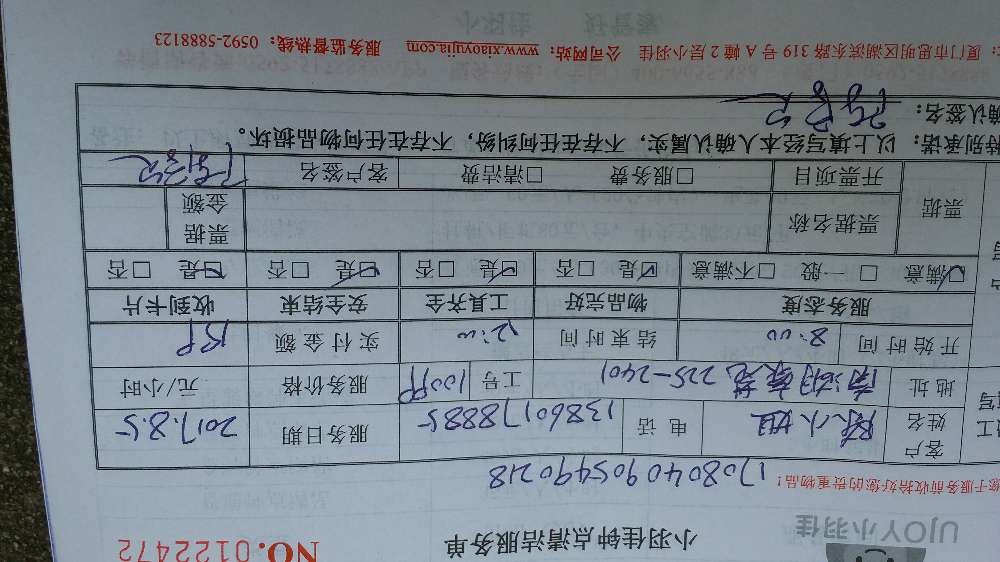 UJOY小羽佳
小羽佳钟点清洁服务单 NO.0122472
您于服务前收拾好您的贵重物品! 1708040905490218
客户姓名 陈小姐 电话 13860178885 服务日期 2017.8.5
地址 225-2401 工号 服务价格 元/小时
开始时间 8:00 结束时间 12:00 实付金额
服务态度 物品完好 工具齐全 安全结束 收到卡片
☑满意 □一般 □不满意 ☑是 □否 ☑是 □否 ☑是 □否 ☑是 □否
票据 票据名称 票据金额
开票项目 □服务费 □清洁费 客户签名
特别承诺:以上填写经本人确认属实,不存在任何纠纷,不存在任何物品损坏。
确认签名:
厦门市思明区湖滨东路319号A幢2层小羽佳 公司网站:www.xiaoyujia.com 服务监督热线:0592-5888123